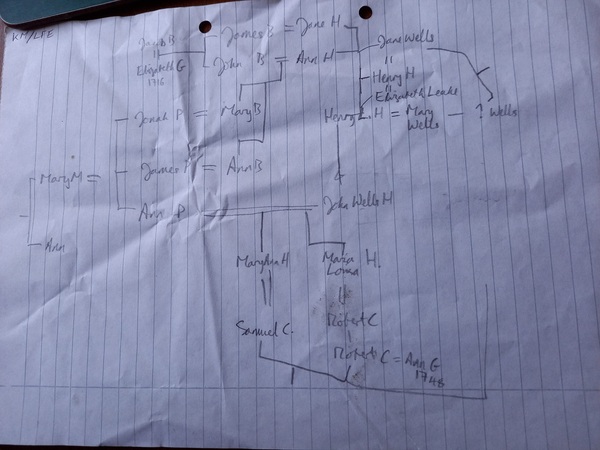 KM/LFE
James B = Jane H
Jacob B
"
Elizabeth G
1715
John B = Ann H
Jane Wells
"
Henry H
"
Elizabeth Leake
Jonah P = Mary B
Henry H = Mary Wells
? Wells
Mary M =
James P = Ann B
Ann P
John Wells H
Ann
Mary Ann H
Maria Louisa H.
Samuel C.
Robert C
Robert C = Ann G
1748